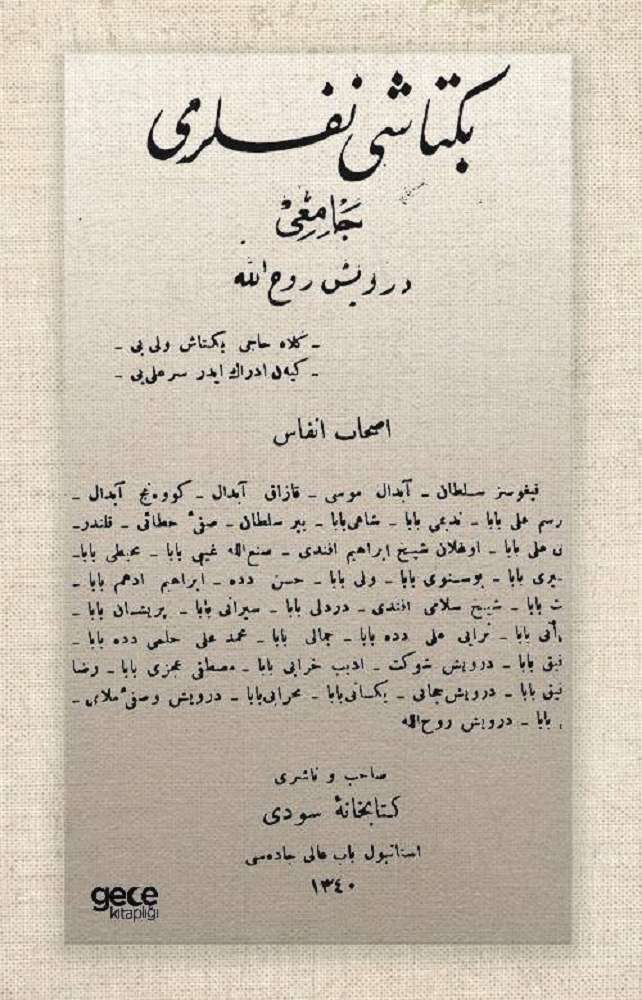 بكتاشی نفسلری
جَامِعِیْ
درویش روح الله
ـ كلاه حاجی بكتاش ولی یی ـ
ـ ادراك ایدر سر علی یی ـ
اصحاب انفاس
قیغوسز سلطان ـ آبدال موسی ـ قازاق آبدال ـ آبدال ـ
رسم علی بابا ـ ندیمی بابا ـ شاهی بابا ـ پیر سلطان ـ خطائی ـ قلندر ـ
علی بابا ـ اوغلان شیخ ابراهیم افندی ـ صنع الله غیبی بابا ـ محیطی بابا ـ
بابا ـ بوسنوی بابا ـ ولی بابا ـ حسن دده ـ ابراهیم ادهم بابا ـ
بابا ـ شیخ سلامی افندی ـ دردلی بابا ـ سیرانی بابا ـ پریشان بابا ـ
بابا ـ ترابی علی دده بابا ـ جمالی بابا ـ محمد علی حلمی دده بابا ـ
بابا ـ درویش شوكت ـ ادیب خرابی بابا ـ مصطفی عجزی بابا ـ رضا
بابا ـ درویش ـ بابا ـ محرابی بابا ـ درویش ـ
بابا ـ درویش روح الله
صاحب و ناشری
كتابخانهٔ سودی
استانبول باب عالی جاده سی
١٣٤٠
gece
kitaplığı